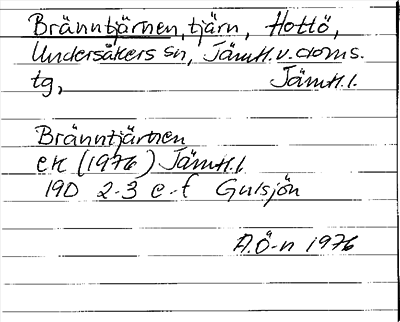 Bränntjärnen, tjärn, Hottö,
Undersåkers sn, Jämtl. v. doms.
tg, Jämtl. l.
Bränntjärnen
ek (1976) Jämtl. l
19D 2-3 e-f Gulsjön
A.Ö-n 1976